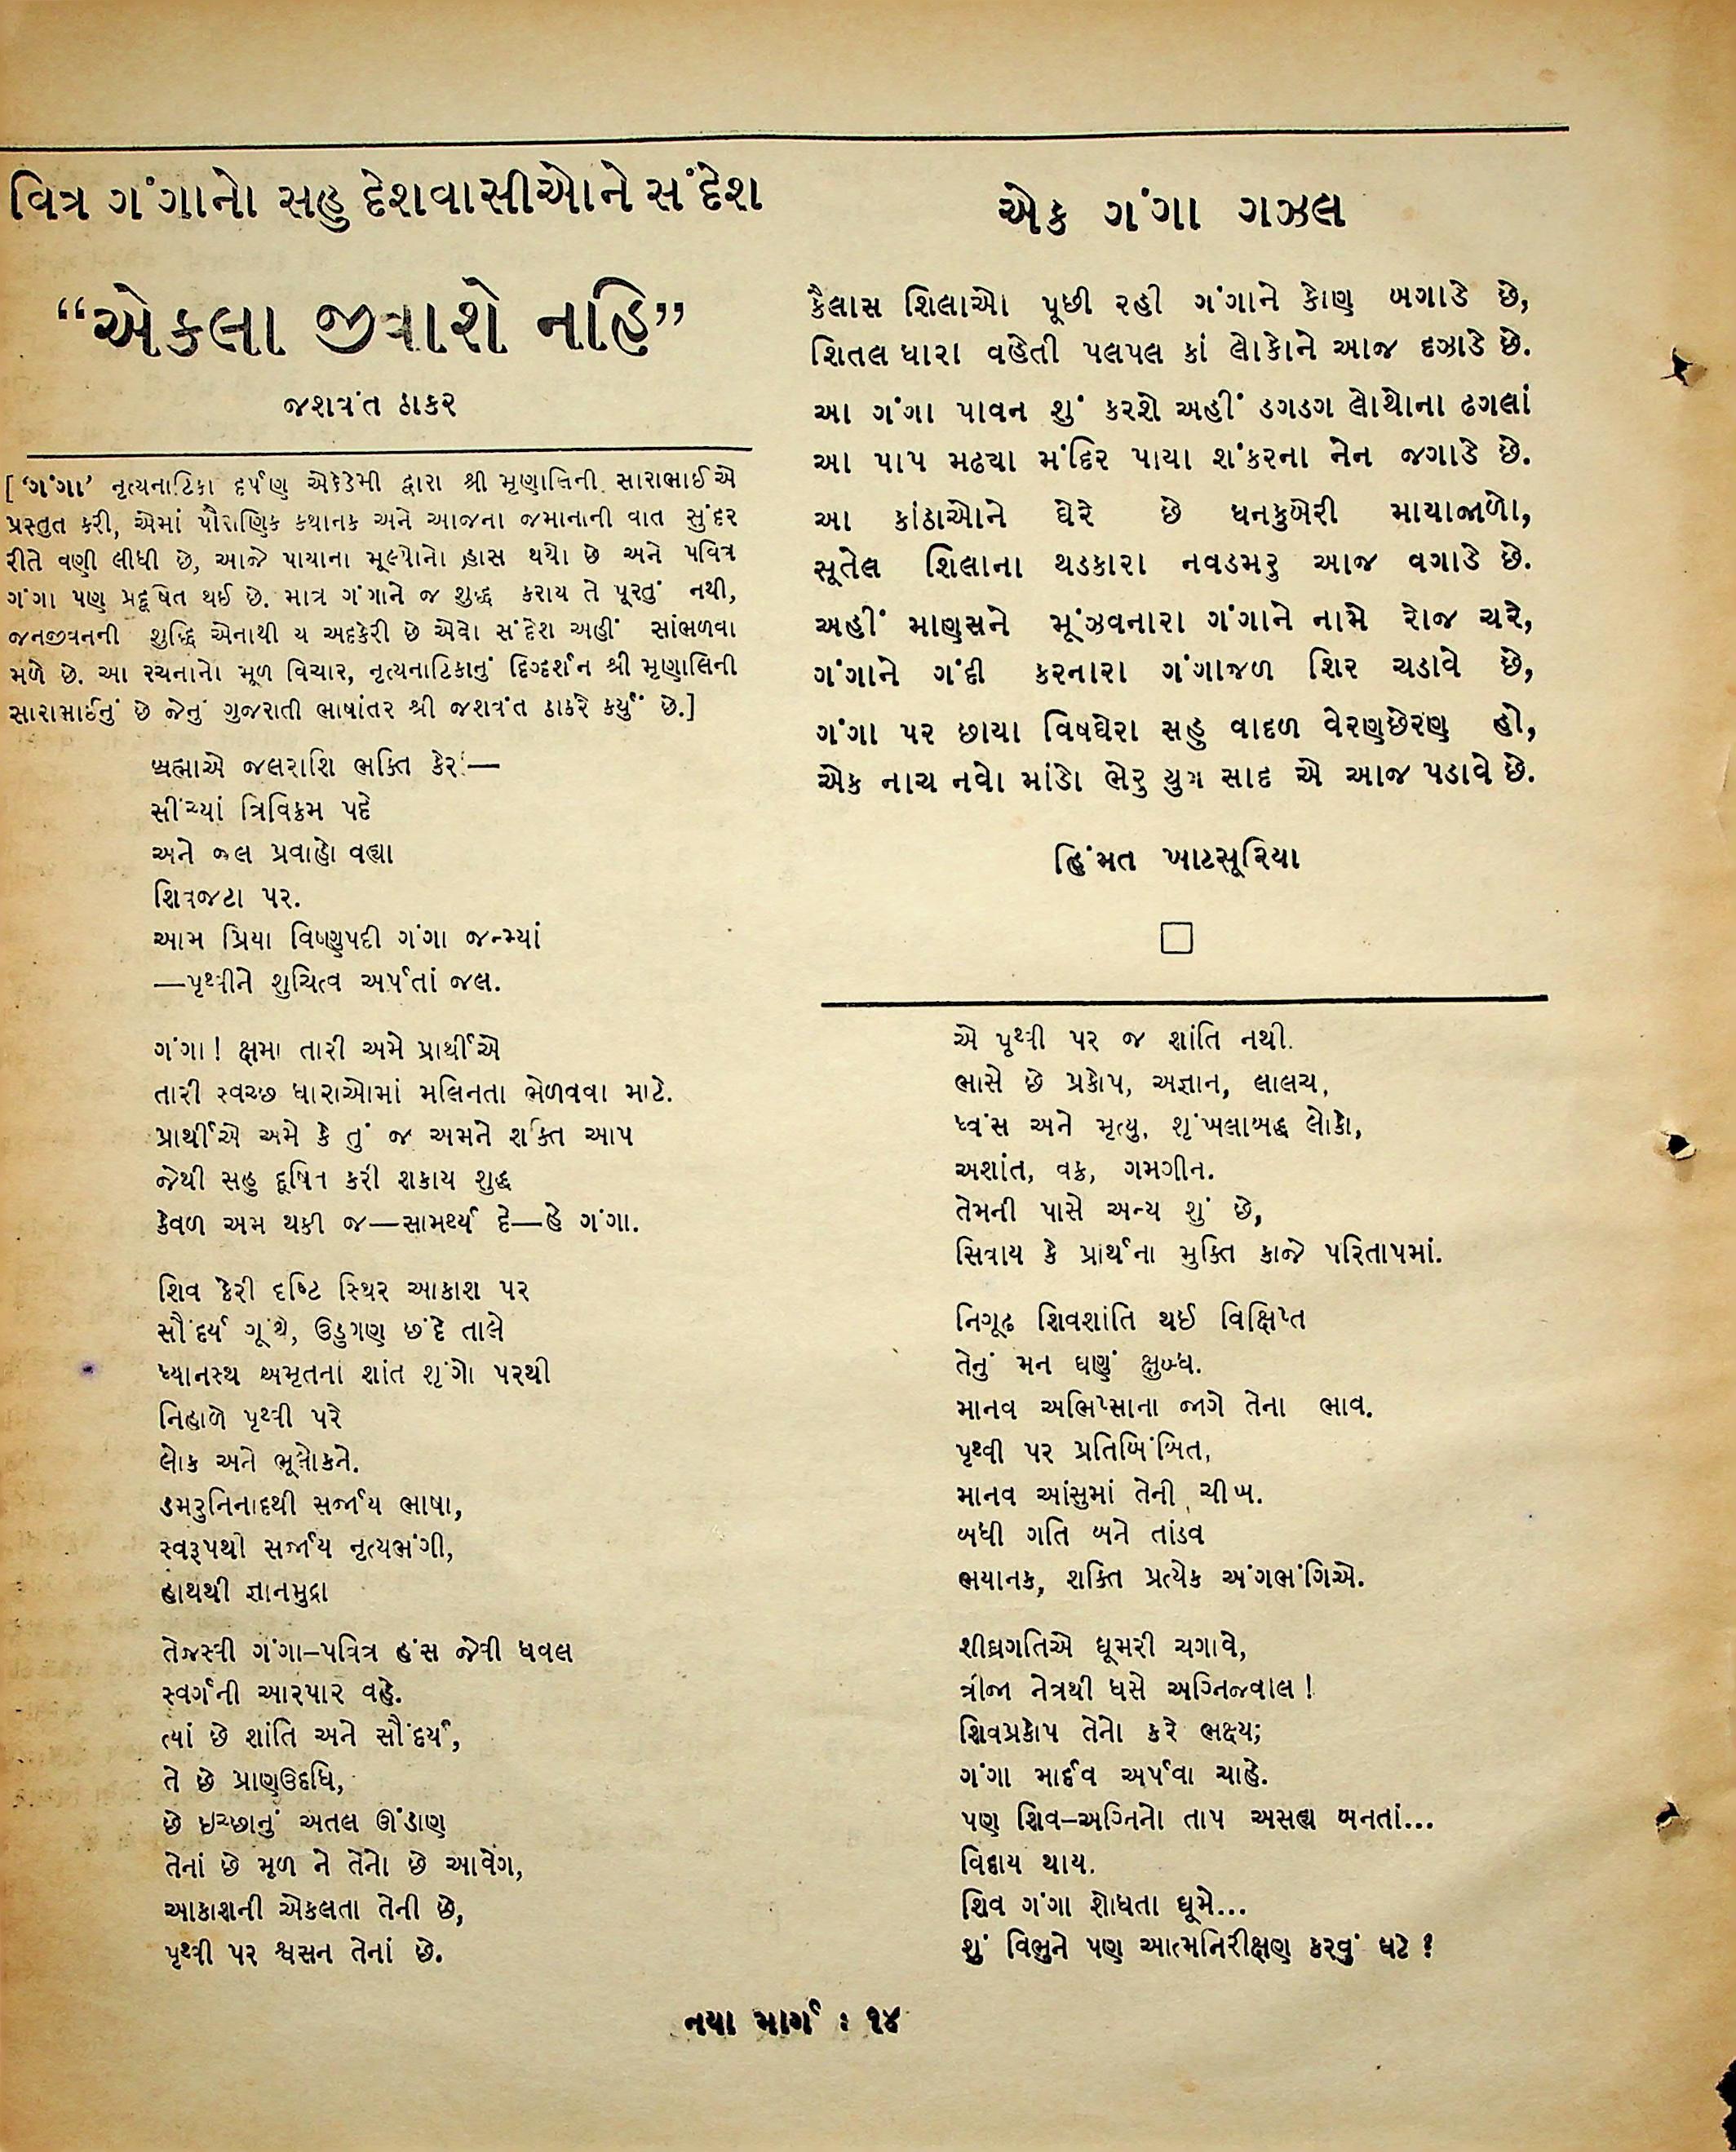 વિત્ર ગંગાનો સહુ દેશવાસીઓને સંદેશ
“એકલા જીવાશે નહિ”
જશવંત ઠાકર
[‘ગંગા’ નૃત્યનાટિકા દર્પણ એકેડેમી દ્વારા શ્રી મૃણાલિની સારાભાઈએ
પ્રસ્તુત કરી, એમાં પૌરાણિક કથાનક અને આજના જમાનાની વાત સુંદર
રીતે વણી લીધી છે, આજે પાયાના મૂલ્યોનો હ્રાસ થયો છે અને પવિત્ર
ગંગા પણ પ્રદૂષિત થઈ છે. માત્ર ગંગાને જ શુદ્ધ કરાય તે પૂરતું નથી,
જનજીવનની શુદ્ધિ એનાથી ય અદકેરી છે એવો સંદેશ અહીં સાંભળવા
મળે છે. આ રચનાનો મૂળ વિચાર, નૃત્યનાટિકાનું દિગ્દર્શન શ્રી મૃણાલિની
સારાભાઈનું છે જેનું ગુજરાતી ભાષાંતર શ્રી જશવંત ઠાકરે કર્યું છે.]
બ્રહ્માએ જલરાશિ ભક્તિ કેરાં—
સીંચ્યાં ત્રિવિક્રમ પદે
અને જલ પ્રવાહો વહ્યા
શિવજટા પર.
આમ પ્રિયા વિષ્ણુપદી ગંગા જન્મ્યાં
—પૃથ્વીને શુચિત્વ અર્પતાં જલ.
ગંગા! ક્ષમા તારી અમે પ્રાર્થીએ
તારી સ્વચ્છ ધારાઓમાં મલિનતા ભેળવવા માટે.
પ્રાર્થીએ અમે કે તું જ અમને શક્તિ આપ
જેથી સહુ દૂષિત કરી શકાય શુદ્ધ
કેવળ અમ થકી જ—સામર્થ્ય દે—હે ગંગા.
શિવ કેરી દૃષ્ટિ સ્થિર આકાશ પર
સૌંદર્ય ગૂંથે, ઉડુગણ છંદે તાલે
ધ્યાનસ્થ અમૃતના શાંત શૃંગો પરથી
નિહાળે પૃથ્વી પરે
લોક અને ભૂલોકને.
ડમરુનિનાદથી સર્જાય ભાષા,
સ્વરૂપથી સર્જાય નૃત્યભંગી,
હાથથી જ્ઞાનમુદ્રા
તેજસ્વી ગંગા–પવિત્ર હંસ જેવી ધવલ
સ્વર્ગની આરપાર વહે.
ત્યાં છે શાંતિ અને સૌંદર્ય,
તે છે પ્રાણઉદધિ,
છે ઇચ્છાનું અતલ ઊંડાણ
તેનાં છે મૂળ ને તેનો છે આવેગ,
આકાશની એકલતા તેની છે,
પૃથ્વી પર શ્વસન તેનાં છે.
એક ગંગા ગઝલ
કૈલાસ શિલાઓ પૂછી રહી ગંગાને કોણ બગાડે છે,
શિતલ ધારા વહેતી પલપલ કાં લોકોને આજ દઝાડે છે.
આ ગંગા પાવન શું કરશે અહીં ડગડગ લોથોના ઢગલાં
આ પાપ મઢ્યા મંદિર પાયા શંકરના નેન જગાડે છે.
આ કાંઠાઓને ઘેરે છે ધનકુબેરી માયાજાળો,
સૂતેલ શિલાના થડકારા નવડમરુ આજ વગાડે છે.
અહીં માણસને મૂંઝવનારા ગંગાને નામે રોજ ચરે,
ગંગાને ગંદી કરનારા ગંગાજળ શિર ચડાવે છે,
ગંગા પર છાયા વિષઘેરા સહુ વાદળ વેરણછેરણ હો,
એક નાચ નવો માંડો ભેરુ યુગ સાદ એ આજ પડાવે છે.
હિંમત ખાટસૂરિયા
એ પૃથ્વી પર જ શાંતિ નથી.
ભાસે છે પ્રકોપ, અજ્ઞાન, લાલચ,
ધ્વંસ અને મૃત્યુ, શૃંખલાબદ્ધ લોકો,
અશાંત, વક્ર, ગમગીન.
તેમની પાસે અન્ય શું છે,
સિવાય કે પ્રાર્થના મુક્તિ કાજે પરિતાપમાં.
નિગૂઢ શિવશાંતિ થઈ વિક્ષિપ્ત
તેનું મન ઘણું ક્ષુબ્ધ.
માનવ અભિપ્સાના જાગે તેના ભાવ.
પૃથ્વી પર પ્રતિબિંબિત,
માનવ આંસુમાં તેની ચીખ.
બધી ગતિ બને તાંડવ
ભયાનક, શક્તિ પ્રત્યેક અંગભંગિએ.
શીઘ્રગતિએ ઘૂમરી ચગાવે,
ત્રીજા નેત્રથી ધસે અગ્નિજ્વાલ!
શિવપ્રકોપ તેનો કરે ભક્ષ્ય;
ગંગા માર્દવ અર્પવા ચાહે.
પણ શિવ–અગ્નિનો તાપ અસહ્ય બનતાં...
વિદાય થાય.
શિવ ગંગા શોધતા ઘૂમે...
શું વિભુને પણ આત્મનિરીક્ષણ કરવું ઘટે?
નયા માર્ગ : ૧૪